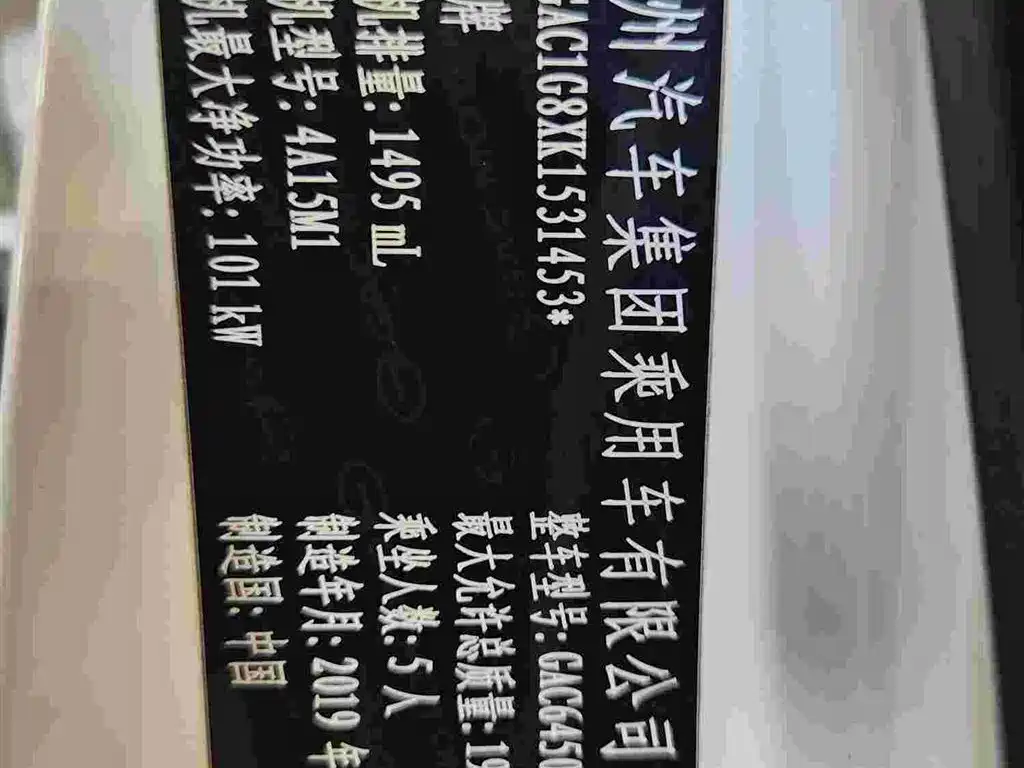 州汽车集团乘用车有限公司
AC1G8XK1531453* 整车型号:GAC6450
牌 最大允许总质量:19
机排量:1495 mL 乘坐人数:5人
机型号:4A15M1 制造年月:2019 年
机最大净功率:101kW 制造国:中国